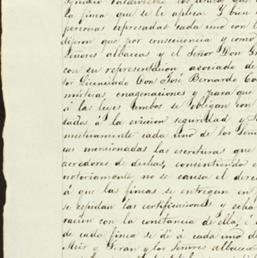 la finca que se le aplica. I bien
personas espresadas cada uno con l
dijeron que por consciencia y como
Señores albaceas y el Señor Don
con su representacion asociado de
lor Licenciado Don José Bernardo Co
misticas, enagenaciones y para que
á las leyes ambos se obligan con
sados á la eviccion seguridad y
mutuamente cada uno de los Seño
cas mencionadas las escrituras que
acreedores de dichas, consintiendo e
notoriamente no se cause el derec
á que las fincas se entregan en
se espidan las certificaciones y
racion con la constancia de ella, i
de cada finca se dé á cada uno d
Mier y Teran y los Señores albacea